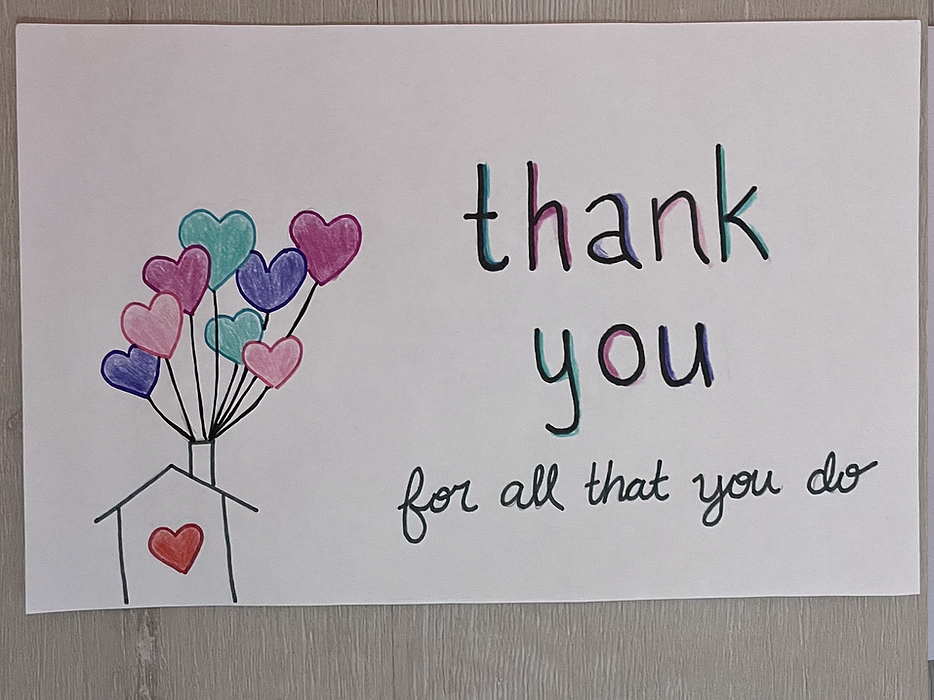 thank
you
for all that you do